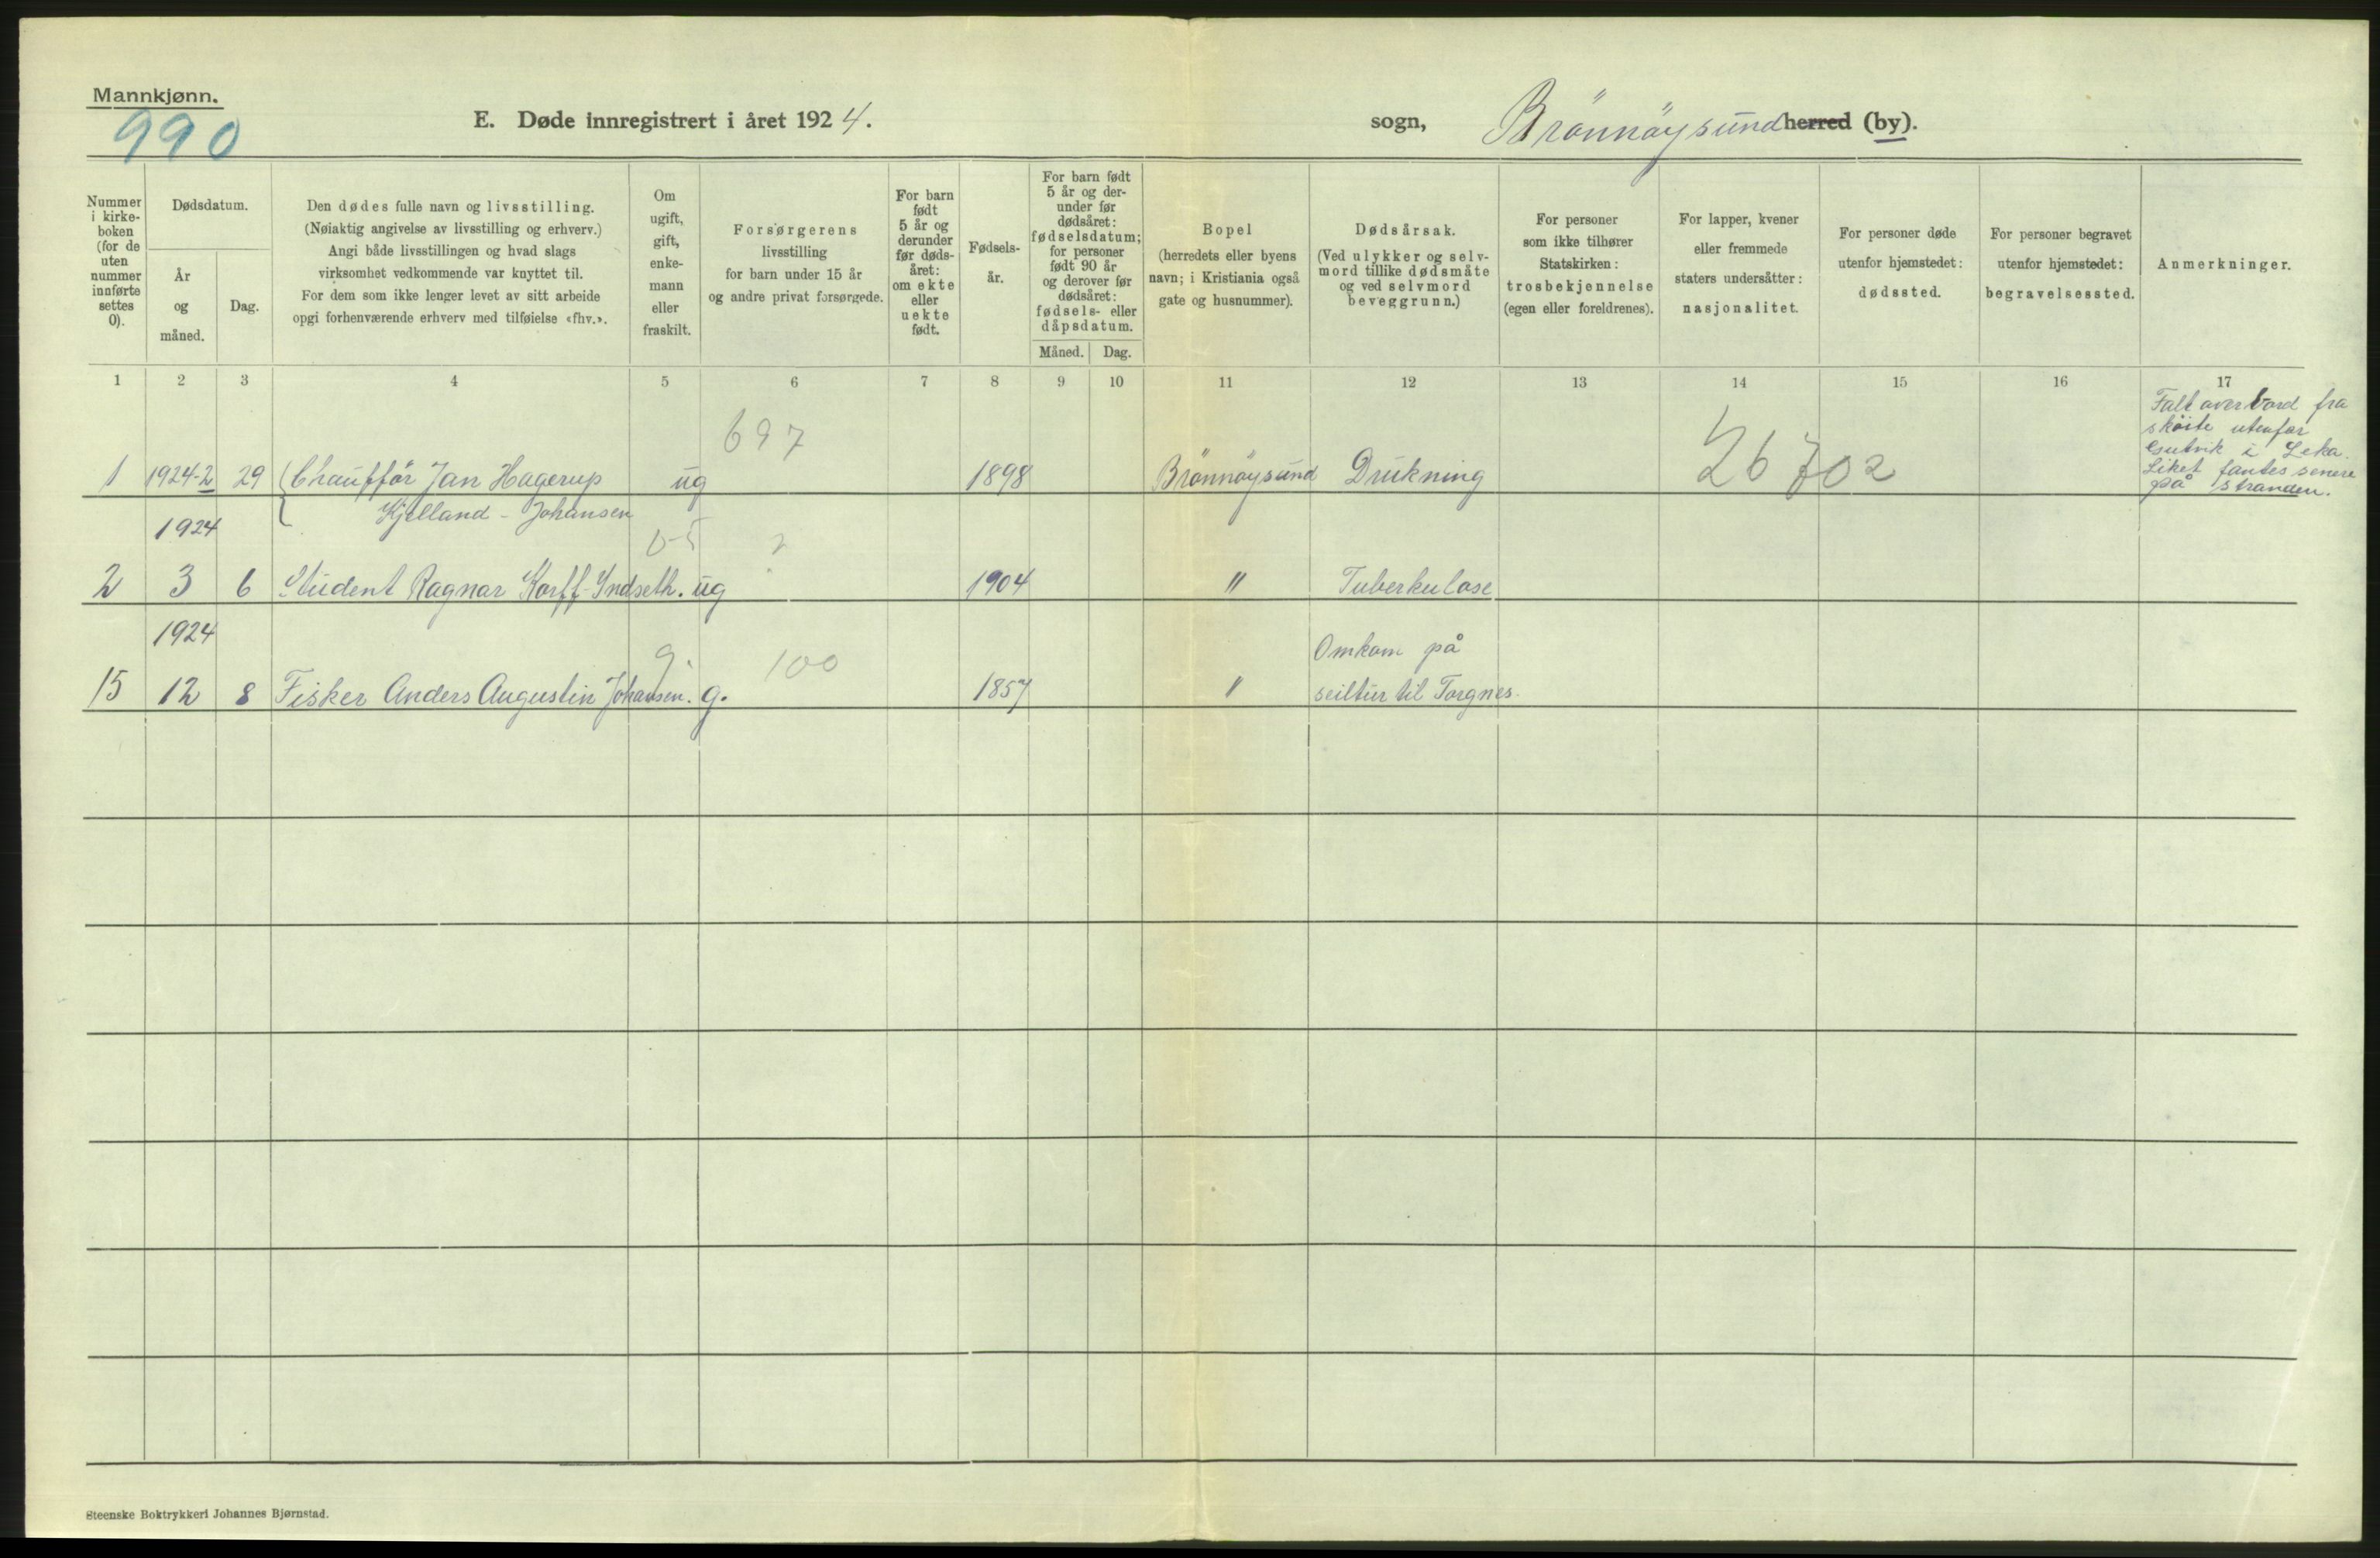 Mannkjønn.
990
E. Døde innregistrert i året 1924.
sogn, Brönnöysund herred (by).
Nummer i kirke-boken (for de uten nummer innførte settes 0).
Dødsdatum.
År og måned.
Dag.
Den dødes fulle navn og livsstilling.
(Nøiaktig angivelse av livsstilling og erhverv.)
Angi både livsstillingen og hvad slags
virksomhet vedkommende var knyttet til.
For dem som ikke lenger levet av sitt arbeide
opgi forhenværende erhverv med tilføielse «fhv.».
Om ugift, gift, enke-mann eller fraskilt.
Forsørgerens
livsstilling
for barn under 15 år
og andre privat forsørgede.
For barn født 5 år og derunder før døds-året: om ekte eller uekte født.
Fødsels-år.
For barn født 5 år og der-under før dødsåret: fødselsdatum; for personer født 90 år og derover før dødsåret: fødsels- eller dåpsdatum.
Måned.
Dag.
Bopel
(herredets eller byens
navn; i Kristiania også
gate og husnummer).
Dødsårsak.
(Ved ulykker og selv-
mord tillike dødsmåte
og ved selvmord
beveggrunn.)
For personer
som ikke tilhører
Statskirken:
trosbekjennelse
(egen eller foreldrenes).
For lapper, kvener
eller fremmede
staters undersåtter:
nasjonalitet.
For personer døde
utenfor hjemstedet:
dødssted.
For personer begravet
utenfor hjemstedet:
begravelsessted.
Anmerkninger.
1 2 3 4 5 6 7 8 9 10 11 12 13 14 15 16 17
697
1 1924-2 29 Chauffør Jan Hagerup ug 1898 Brönnöysund Drukning 26702
Kjelland-Johansen
Falt overbord fra
skøite utenfor
Gutvik i Leka.
Liket fantes senere
på stranden.
1924
?
2 3 6 Student Ragnar Korff-Yndseth. ug 1904 " Tuberkulose
1924
g. 100
15 12 8 Fisker Anders Augustin Johansen. g. 1857 " Omkom på
seiltur til Torgnes.
Steenske Boktrykkeri Johannes Bjørnstad.